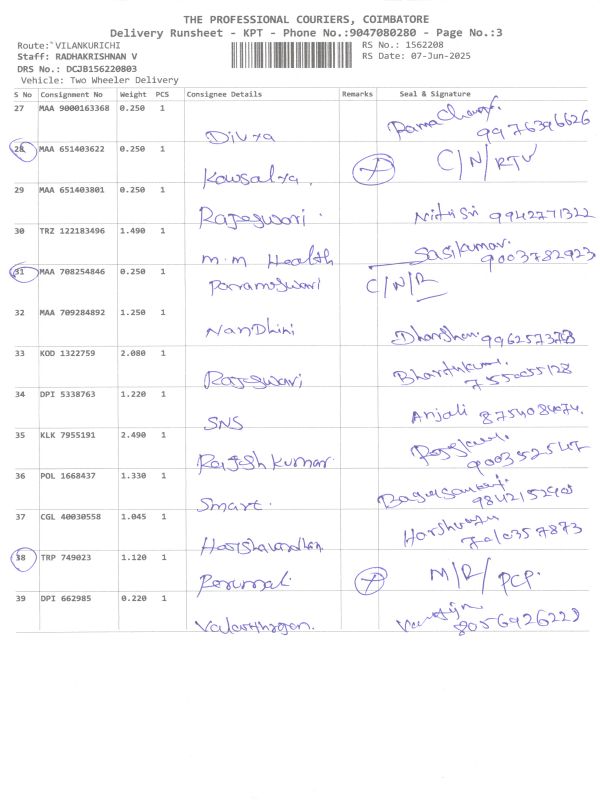 THE PROFESSIONAL COURIERS, COIMBATORE
Delivery Runsheet - KPT - Phone No.:9047080280 - Page No.:3
Route: VILANKURICHI RS No.: 1562208
Staff: RADHAKRISHNAN V RS Date: 07-Jun-2025
DRS No.: DCJB156220803
Vehicle: Two Wheeler Delivery
S No Consignment No Weight PCS Consignee Details Remarks Seal & Signature
27 MAA 9000163368 0.250 1 Divya 9976396626
28 MAA 651403622 0.250 1 Kowsalya. C/N/RTV
29 MAA 651403801 0.250 1 Rajeswari. Nithi Sri 9942771322
30 TRZ 122183496 1.490 1 M.M Health Sasikumar. 9003782923
31 MAA 708254846 0.250 1 Parrameswari C/N/R
32 MAA 709284892 1.250 1 Nandhini Dharshan. 996257378
33 KOD 1322759 2.080 1 Rajeswari
34 DPI 5338763 1.220 1 SNS Anjali 8754084074.
35 KLK 7955191 2.490 1 Rajesh Kumar.
36 POL 1668437 1.330 1 Smart.
37 CGL 40030558 1.045 1
38 TRP 749023 1.120 1 Perumal. M/R/PCP.
39 DPI 662985 0.220 1 8056926229